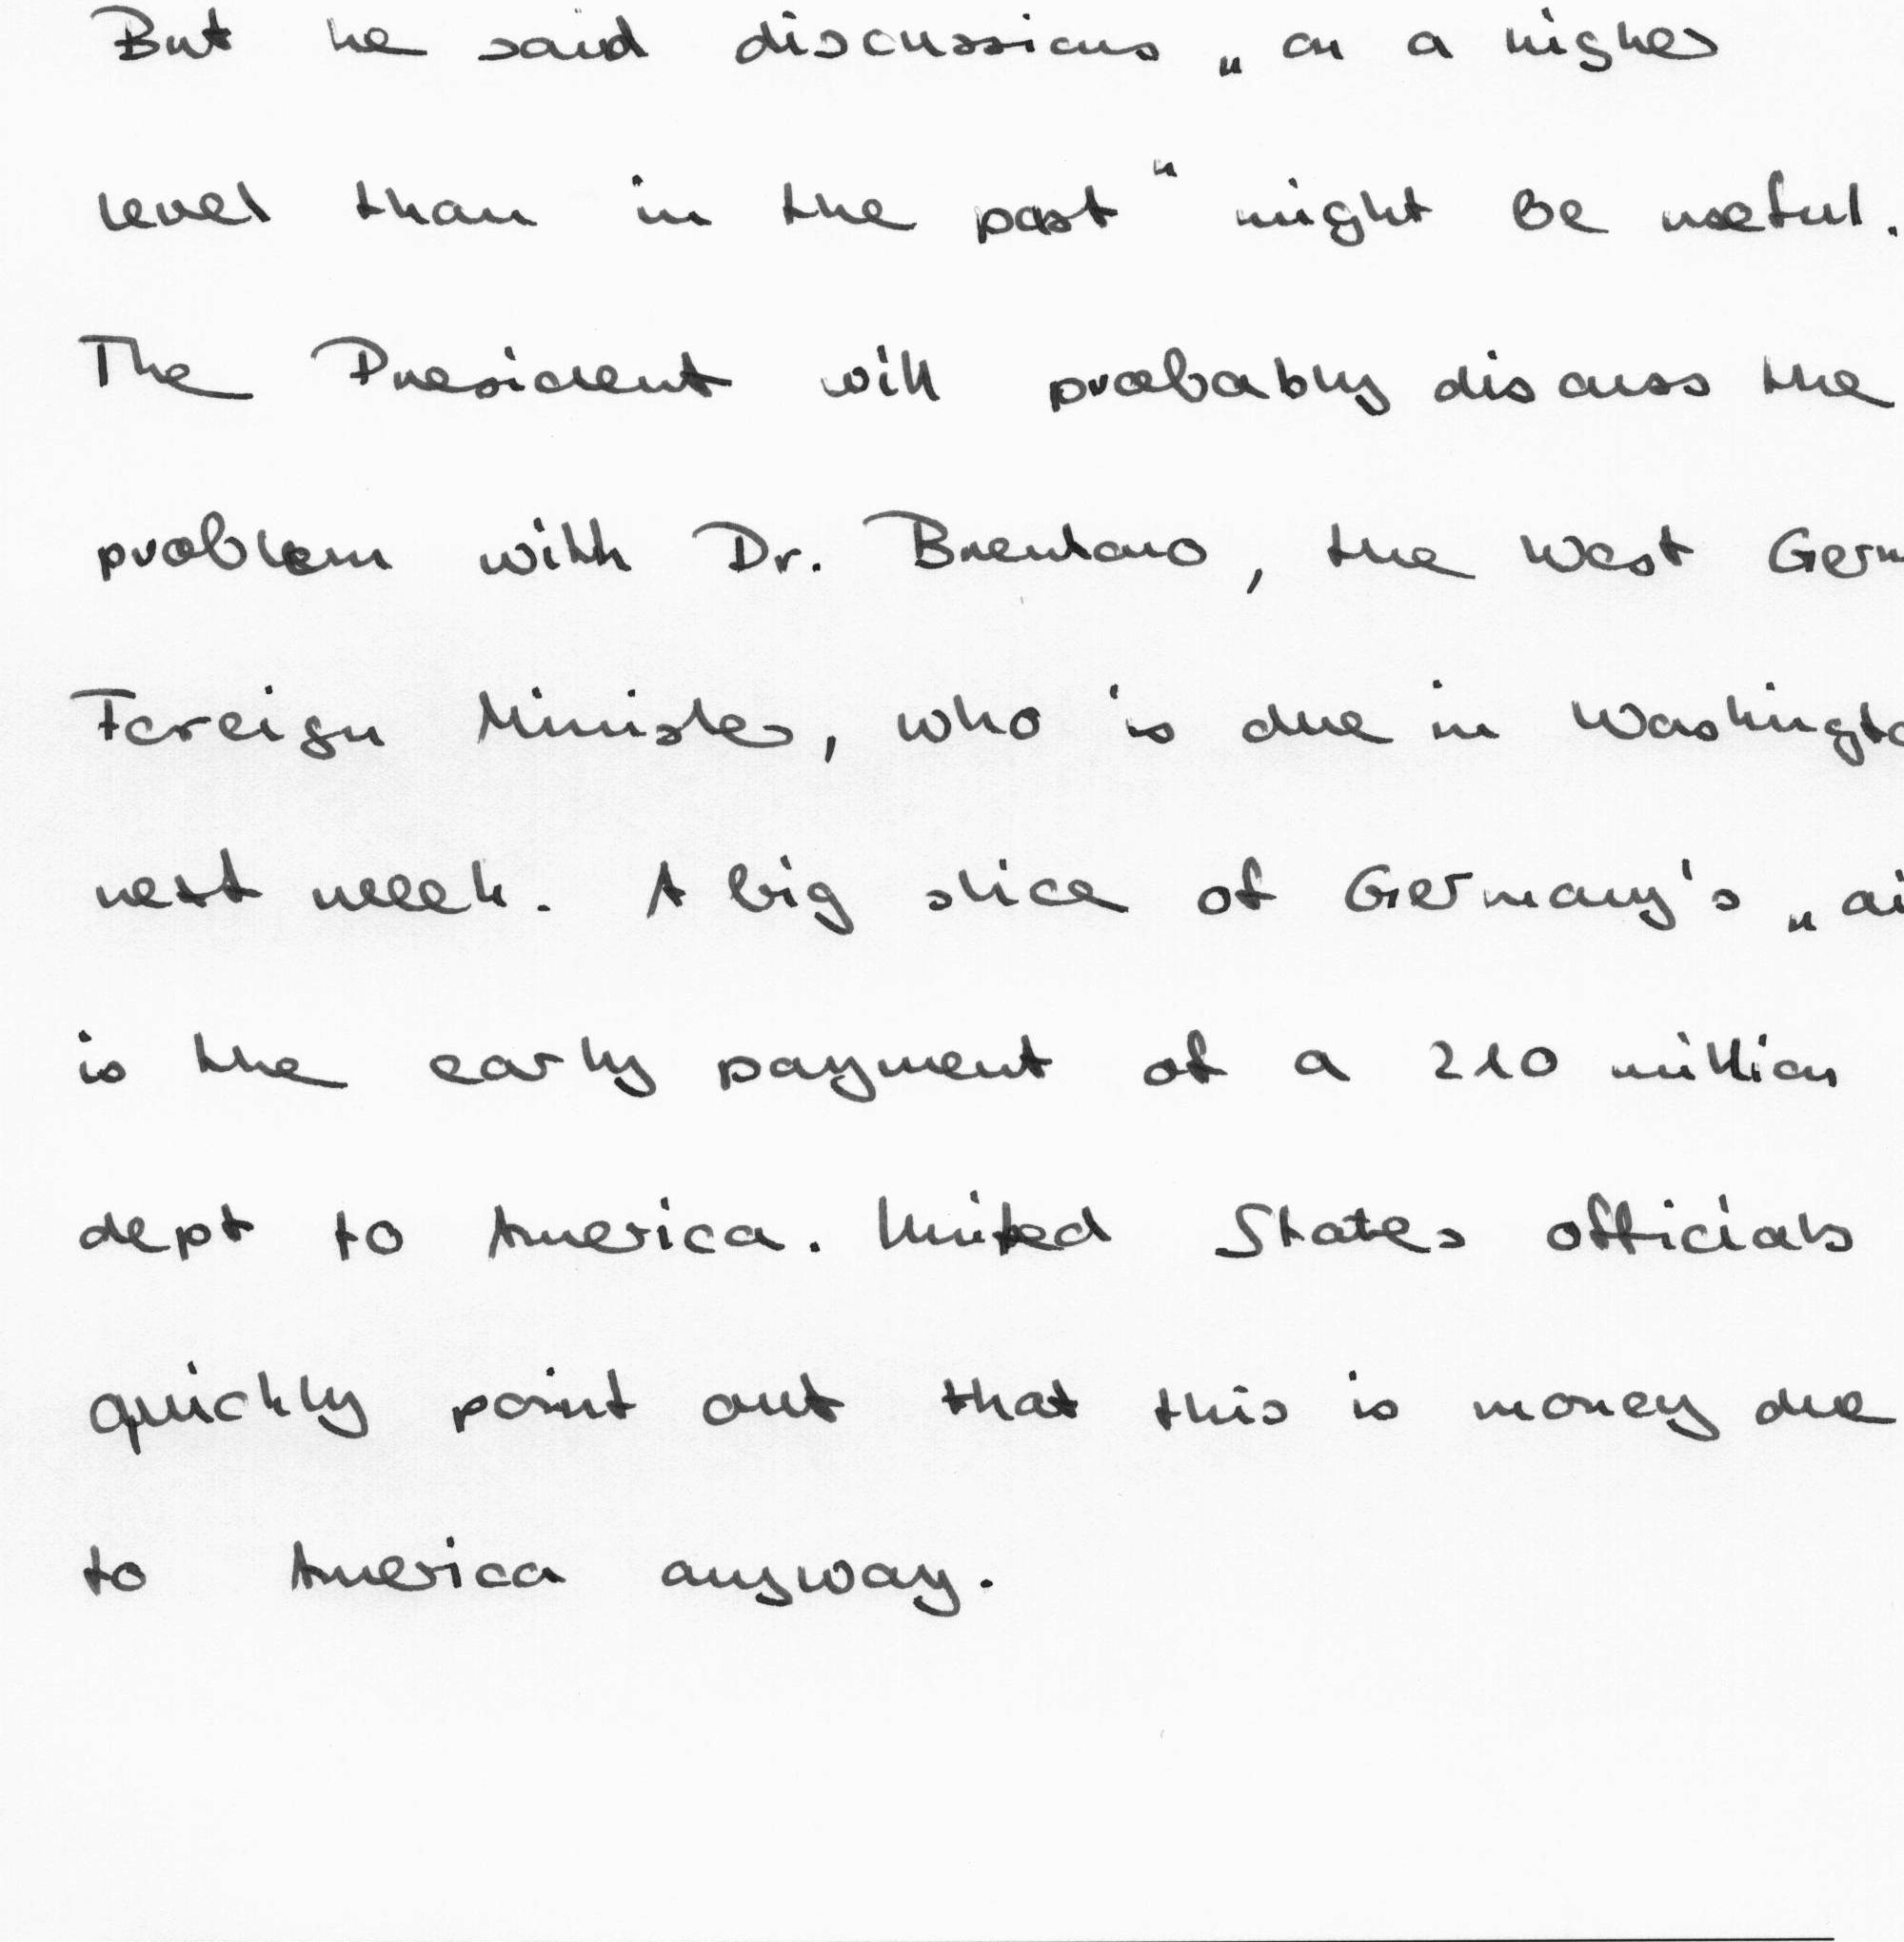 But he said discussions „on a higher
level than in the past" might be useful.
The President will probably discuss the
problem with Dr. Brentano, the West Germ
Foreign Minister, who is due in Washingto
next week. A big slice of Germany's „ai
is the early payment of a 210 million
dept to America. United States officials
quickly point out that this is money due
to America anyway.